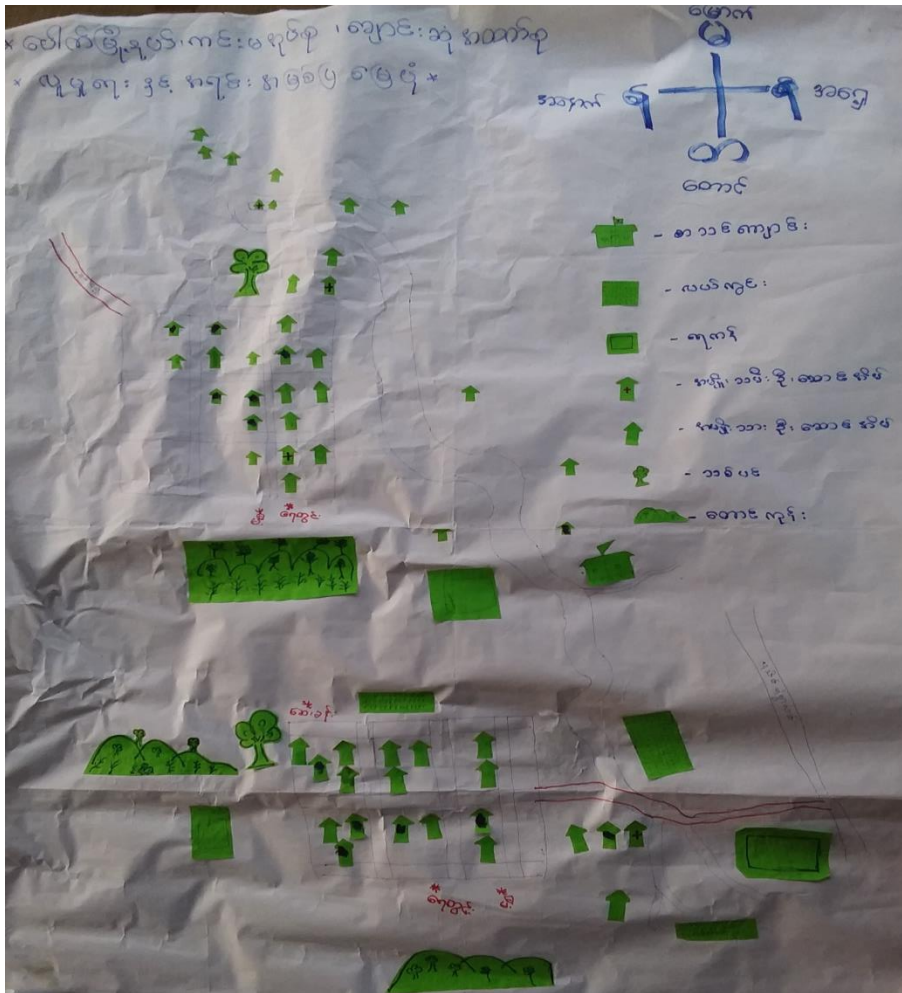 * ပေါက်မြို့နယ်၊ ကင်းမအုပ်စု၊ ကျောင်းဆုံအထက်စု
* လူမှုရေး နှင့် အရင်းအမြစ်ပြ မြေပုံ *
မြောက်
မ
အနောက်
အရှေ့
တ
တောင်
- စာသင်ကျောင်း
- လယ်ကွင်း
- ရေကန်
- အမျိုးသမီးဦးဆောင်အိမ်
- အမျိုးသားဦးဆောင်အိမ်
- သစ်ပင်
- တောင်ကုန်း
* ရေတွင်း
* ဆေးခန်း
* ရေတွင်း